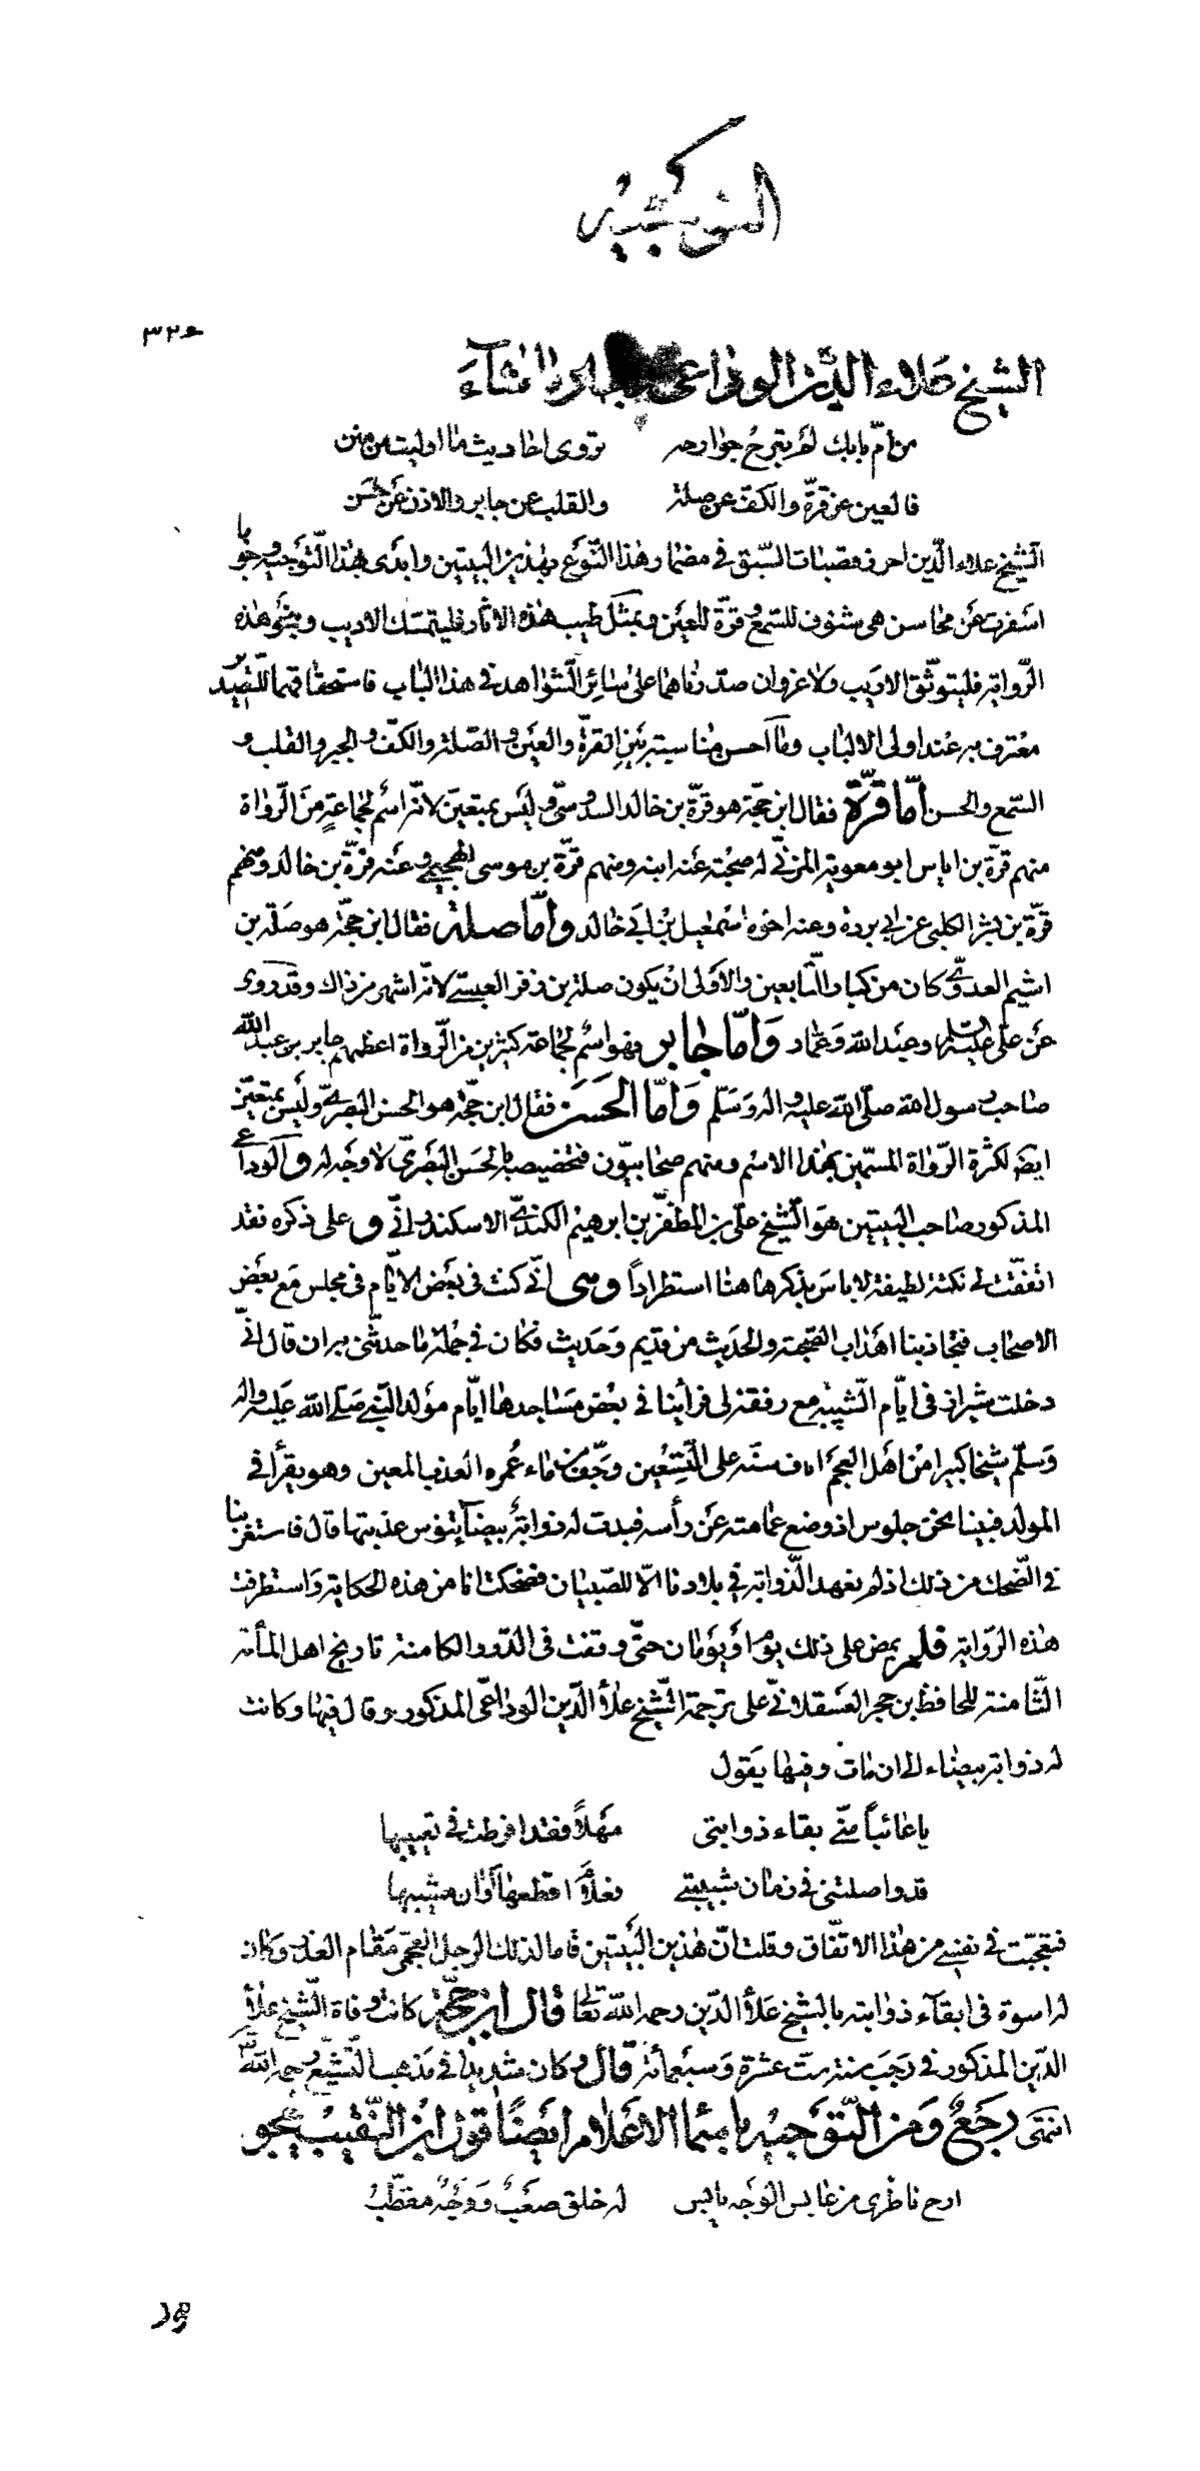 التوجيه
٣٢٠
الشيخ علاء الدين الوداعى
من امّ بابك لم تبرح جوارحه تروى احاديث ما اوليت من منن
فالعين عن قرّة والكفّ عن صلة والقلب عن جابر والاذن عن حسن
الشّيخ علاء الدّين احرز قصبات السّبق فى مضمار هذا النّوع بهذين البيتين وابدى بهذا التّوجيه وجوها
اسفرت عن محاسن هى شنوف للسّمع وقرّة للعين وبمثل طيب هذه الاثار فليتمسّك الاديب وبنحو هذه
الرّواية فليتوثّق الاديب ولا غرو ان صدّرناهما على سائر الشّواهد فى هذا الباب فاستحقاقهما للتّصدير
معترف به عند اولى الالباب وما احسن مناسبته بين القرّة والعين والصّلة والكفّ والجبر والقلب و
السّمع والحسن امّا قرّة فقال ابن حجّة هو قرّة بن خالد السدوسىّ وليس بمتعيّن لانّه اسم لجماعةٍ من الرّواة
منهم قرّة بن اياس ابو معوية المزنىّ له صحبة عنه ابنه ومنهم قرّة بن موسى الهجيمىّ وعنه قرّة بن خالد ومنهم
قرّة بن بشر الكلبى عن ابى بردة وعنه اخوه اسمعيل بن ابى خالد وامّا صلة فقال ابن حجّة هو صلة بن
اشيم العدوىّ كان من كبار التّابعين والاولى ان يكون صلة بن زفر العبسىّ لانّه اشهر من ذاك وقد روى
عن علىّ عليه السلام وعبد الله وعمّار وامّا جابر فهو اسم لجماعة كثيرين من الرّواة اعظمهم جابر بن عبد الله
صاحب رسول الله صلّى الله عليه واله وسلّم وامّا الحسن فقال ابن حجّة هو الحسن البصرىّ وليس بمتعيّن
ايضا لكثرة الرّواة المسمّين بهذا الاسم ومنهم صحابيّون فتخصيصه بالحسن البصرىّ لا وجه له والوداعى
المذكور صاحب البيتين هو الشّيخ علىّ بن المظفّر بن ابرهيم الكندىّ الاسكندرانىّ وعلى ذكره فقد
اتّفقت لى نكتة لطيفة لا باس بذكرها هنا استطراداً وهى انّى كنت فى بعض الايّام فى مجلس مع بعض
الاصحاب فتجاذبنا اهداب الصّحبة والحديث من قديم وحديث فكان فى جملة ما حدثّنى به ان قال انّى
دخلت شيراز فى ايّام الشّبيبة مع رفقة لى فراينا فى بعض مساجدها ايّام مولد النّبى صلّى الله عليه واله
وسلّم شيخا كبيرا من اهل العجم اناف سنّه على التّسعين وجفّ ماء عمره العذب المعين وهو يقرأ فى
المولد فبينا نحن جلوس اذ وضع عمامته عن رأسه فبدت له ذوابة بيضآء ينوس عذبتها قال فاستغربنا
فى الضّحك من ذلك اذ لم نعهد الذّوابة فى بلادنا الّا للصّبيان فضحكت انا من هذه الحكاية واستظرفت
هذه الرّواية فلم يمض على ذلك يوم او يومان حتّى وقفت فى الدّرر الكامنة تاريخ اهل المأة
الثّامنة للحافظ بن حجر العسقلانىّ على ترجمة الشّيخ علاء الدّين الوداعىّ المذكور وقال فيها وكانت
له ذوابة بيضاء الى ان مات وفيها يقول
يا عائباً منّى بقاء ذوابتى مهلاً فقد افرطت فى تعييبها
قد واصلتنى فى زمان شبيبتى فعلام اقطعها اوان مشيبها
فتعجّبت فى نفسى من هذا الاتّفاق وقلت انّ هذين البيتين قاما لذلك الرجل العجمىّ مقام العذر وكان
له اسوة فى ابقآء ذوابته بالشيخ علاء الدّين رحمه الله تعالى قال ابن حجّة كانت وفاة الشّيخ علاء
الدّين المذكور فى رجب سنة ستّ عشرة وسبعمائة قال وكان شديدا فى مذهب التّشيّع رحمه الله
انتهى رجع ومن التّوجيه باسماء الاعلام ايضًا قول ابن النّقيب يهجو
ارح ناظرى من عابس الوجه يابس له خلق صعبٌ ووجهٌ مقطّبُ